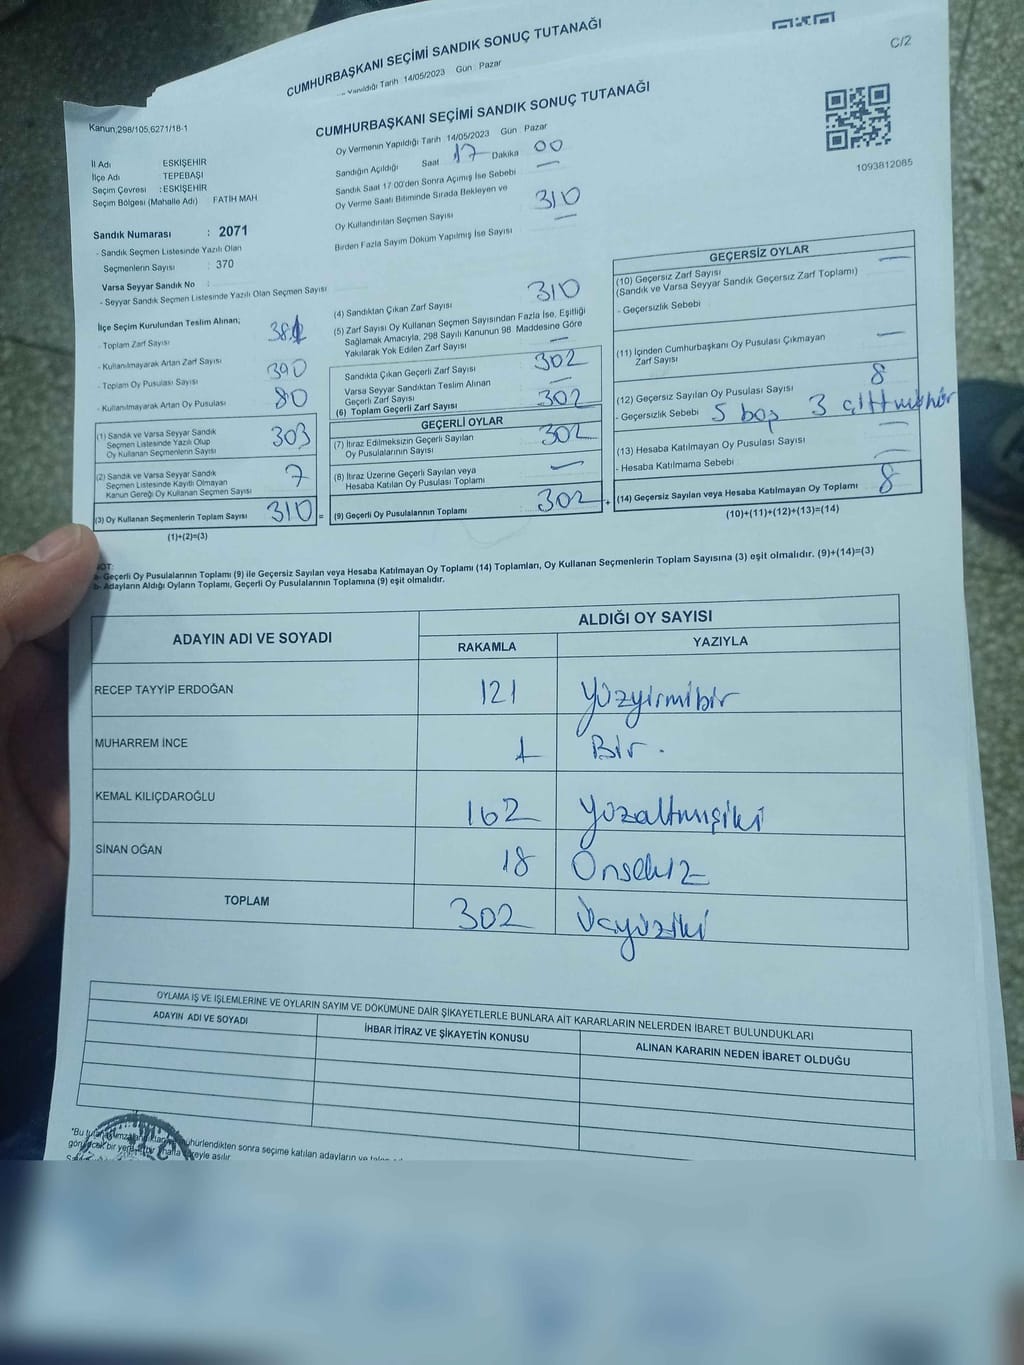 CUMHURBAŞKANI SEÇİMİ SANDIK SONUÇ TUTANAĞI
Tarih 14/05/2023 Gün : Pazar
C/2
Kanun;298/105,6271/18-1
CUMHURBAŞKANI SEÇİMİ SANDIK SONUÇ TUTANAĞI
Oy Vermenin Yapıldığı Tarih 14/05/2023 Gün : Pazar
Sandığın Açıldığı Saat 17 Dakika 00
Sandık Saat 17:00'den Sonra Açımış İse Sebebi —
Oy Verme Saati Bitiminde Sırada Bekleyen ve
Oy Kullandırılan Seçmen Sayısı 310
Birden Fazla Sayım Döküm Yapılmış İse Sayısı —
1093812085
İl Adı : ESKİŞEHİR
İlçe Adı : TEPEBAŞI
Seçim Çevresi : ESKİŞEHİR
Seçim Bölgesi (Mahalle Adı) FATİH MAH
Sandık Numarası : 2071
- Sandık Seçmen Listesinde Yazılı Olan
Seçmenlerin Sayısı : 370
Varsa Seyyar Sandık No :
- Seyyar Sandık Seçmen Listesinde Yazılı Olan Seçmen Sayısı
İlçe Seçim Kurulundan Teslim Alınan;
- Toplam Zarf Sayısı
- Kullanılmayarak Artan Zarf Sayısı
- Toplam Oy Pusulası Sayısı 390
- Kullanılmayarak Artan Oy Pusulası 80
(1) Sandık ve Varsa Seyyar Sandık
Seçmen Listesinde Yazılı Olup
Oy Kullanan Seçmenlerin Sayısı 303
(2) Sandık ve Varsa Seyyar Sandık
Seçmen Listesinde Kayıtlı Olmayan
Kanun Gereği Oy Kullanan Seçmen Sayısı 7
(3) Oy Kullanan Seçmenlerin Toplam Sayısı 310 =
(1)+(2)=(3)
(4) Sandıktan Çıkan Zarf Sayısı 310
(5) Zarf Sayısı Oy Kullanan Seçmen Sayısından Fazla İse, Eşitliği
Sağlamak Amacıyla, 298 Sayılı Kanunun 98. Maddesine Göre
Yakılarak Yok Edilen Zarf Sayısı —
Sandıkta Çıkan Geçerli Zarf Sayısı 302
Varsa Seyyar Sandıktan Teslim Alınan
Geçerli Zarf Sayısı —
(6) Toplam Geçerli Zarf Sayısı 302
GEÇERLİ OYLAR
(7) İtiraz Edilmeksizin Geçerli Sayılan
Oy Pusulalarının Sayısı 302
(8) İtiraz Üzerine Geçerli Sayılan veya
Hesaba Katılan Oy Pusulası Toplamı —
(9) Geçerli Oy Pusulalarının Toplamı 302 +
GEÇERSİZ OYLAR
(10) Geçersiz Zarf Sayısı —
(Sandık ve Varsa Seyyar Sandık Geçersiz Zarf Toplamı)
- Geçersizlik Sebebi :
(11) İçinden Cumhurbaşkanı Oy Pusulası Çıkmayan
Zarf Sayısı —
(12) Geçersiz Sayılan Oy Pusulası Sayısı 8
- Geçersizlik Sebebi : 5 boş 3 çift mühür
(13) Hesaba Katılmayan Oy Pusulası Sayısı —
- Hesaba Katılmama Sebebi :
(14) Geçersiz Sayılan veya Hesaba Katılmayan Oy Toplamı 8
(10)+(11)+(12)+(13)=(14)
NOT:
a- Geçerli Oy Pusulalarının Toplamı (9) ile Geçersiz Sayılan veya Hesaba Katılmayan Oy Toplamı (14) Toplamları, Oy Kullanan Seçmenlerin Toplam Sayısına (3) eşit olmalıdır. (9)+(14)=(3)
b- Adayların Aldığı Oyların Toplamı, Geçerli Oy Pusulalarının Toplamına (9) eşit olmalıdır.
ADAYIN ADI VE SOYADI
ALDIĞI OY SAYISI
RAKAMLA YAZIYLA
RECEP TAYYİP ERDOĞAN 121 Yüzyirmibir
MUHARREM İNCE 1 Bir.
KEMAL KILIÇDAROĞLU 162 Yüzaltmışiki
SİNAN OĞAN 18 Onsekiz
TOPLAM 302 Üçyüziki
OYLAMA İŞ VE İŞLEMLERİNE VE OYLARIN SAYIM VE DÖKÜMÜNE DAİR ŞİKAYETLERLE BUNLARA AİT KARARLARIN NELERDEN İBARET BULUNDUKLARI
ADAYIN ADI VE SOYADI
İHBAR İTİRAZ VE ŞİKAYETİN KONUSU
ALINAN KARARIN NEDEN İBARET OLDUĞU
"Bu mühürlendikten sonra seçime katılan adayların ve
bir hafta süreyle asılır